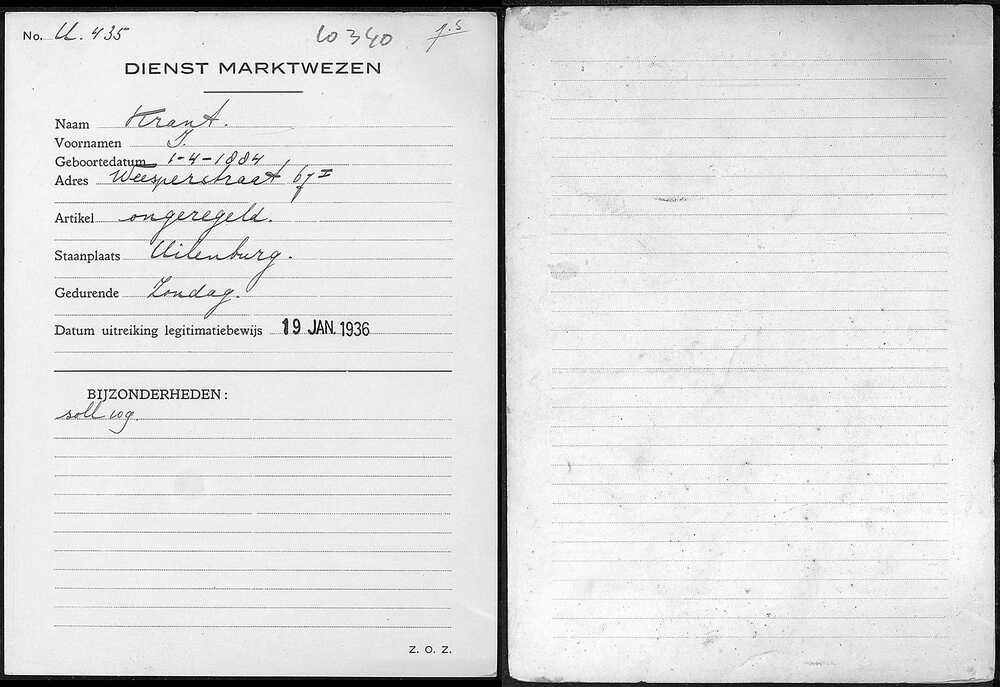 No. U. 435 10340 g.s
DIENST MARKTWEZEN
Naam Krant.
Voornamen I.
Geboortedatum 1-4-1884
Adres Weesperstraat 67 I
Artikel ongeregeld.
Staanplaats Uilenburg.
Gedurende Zondag.
Datum uitreiking legitimatiebewijs 19 JAN. 1936
BIJZONDERHEDEN:
soll wg.
Z. O. Z.